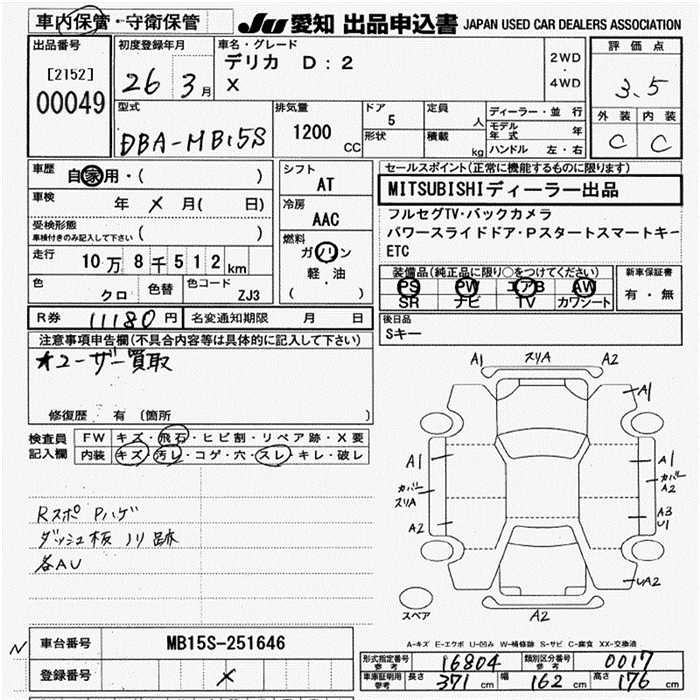 車内保管・守衛保管
JU 愛知 出品申込書 JAPAN USED CAR DEALERS ASSOCIATION
出品番号
[2152]
00049
初度登録年月
26 3月
車名・グレード
デリカ D:2
X
2WD
・
4WD
評価点
3.5
外装 内装
C C
型式
DBA-MB15S
排気量
1200 CC
ドア
5
形状
定員
人
積載
kg
ディーラー・並行
モデル年式 年
ハンドル 左・右
車歴
自家用・( )
車検
年 X 月( 日)
受検形態
車検付きのみ記入して下さい ( )
走行
10万8千512km
色
クロ
色替
色コード
ZJ3
シフト
AT
冷房
AAC
燃料
ガソリン
軽・油
( )
セールスポイント(正常に機能するものに限ります)
MITSUBISHIディーラー出品
フルセグTV・バックカメラ
パワースライドドア・Pスタートスマートキー
ETC
装備品(純正品に限り○をつけてください)
PS PW エアB AW
SR ナビ TV カワシート
新車保証書
有・無
R券 11180円
名変通知期限 月 日
後日品
Sキー
注意事項申告欄(不具合内容等は具体的に記入して下さい)
★ユーザー買取
修復歴 有 (箇所 )
検査員
記入欄
FW キズ・飛石・ヒビ割・リペア跡・X要
内装 キズ・汚レ・コゲ・穴・スレ・キレ・破レ
Rスポ Pハゲ
ダッシュ板 ノリ跡
各AU
A1 スリA A2
A1
A1 A1
カバー スリA
カバー A2
A2 A3
U1
UA2
スペア
A2
A-キズ E-エクボ U-凹み W-補修跡 S-サビ C-腐食 XX-交換済
N
車台番号 MB15S-251646
登録番号 X
形式指定番号 参考 16804
類別区分番号 参考 0017
車庫証明用 参考 長さ 371cm 幅 162cm 高さ 176cm